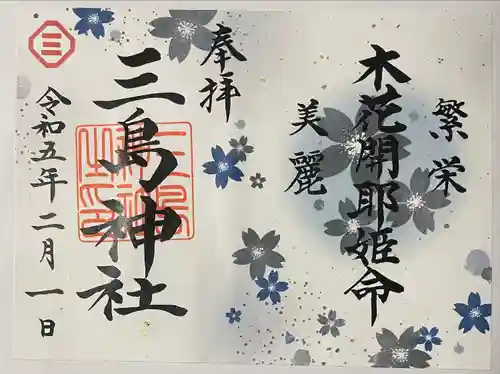 繁栄
木花開耶姫命
美麗
奉拝
三島神社
令和五年二月一日
三